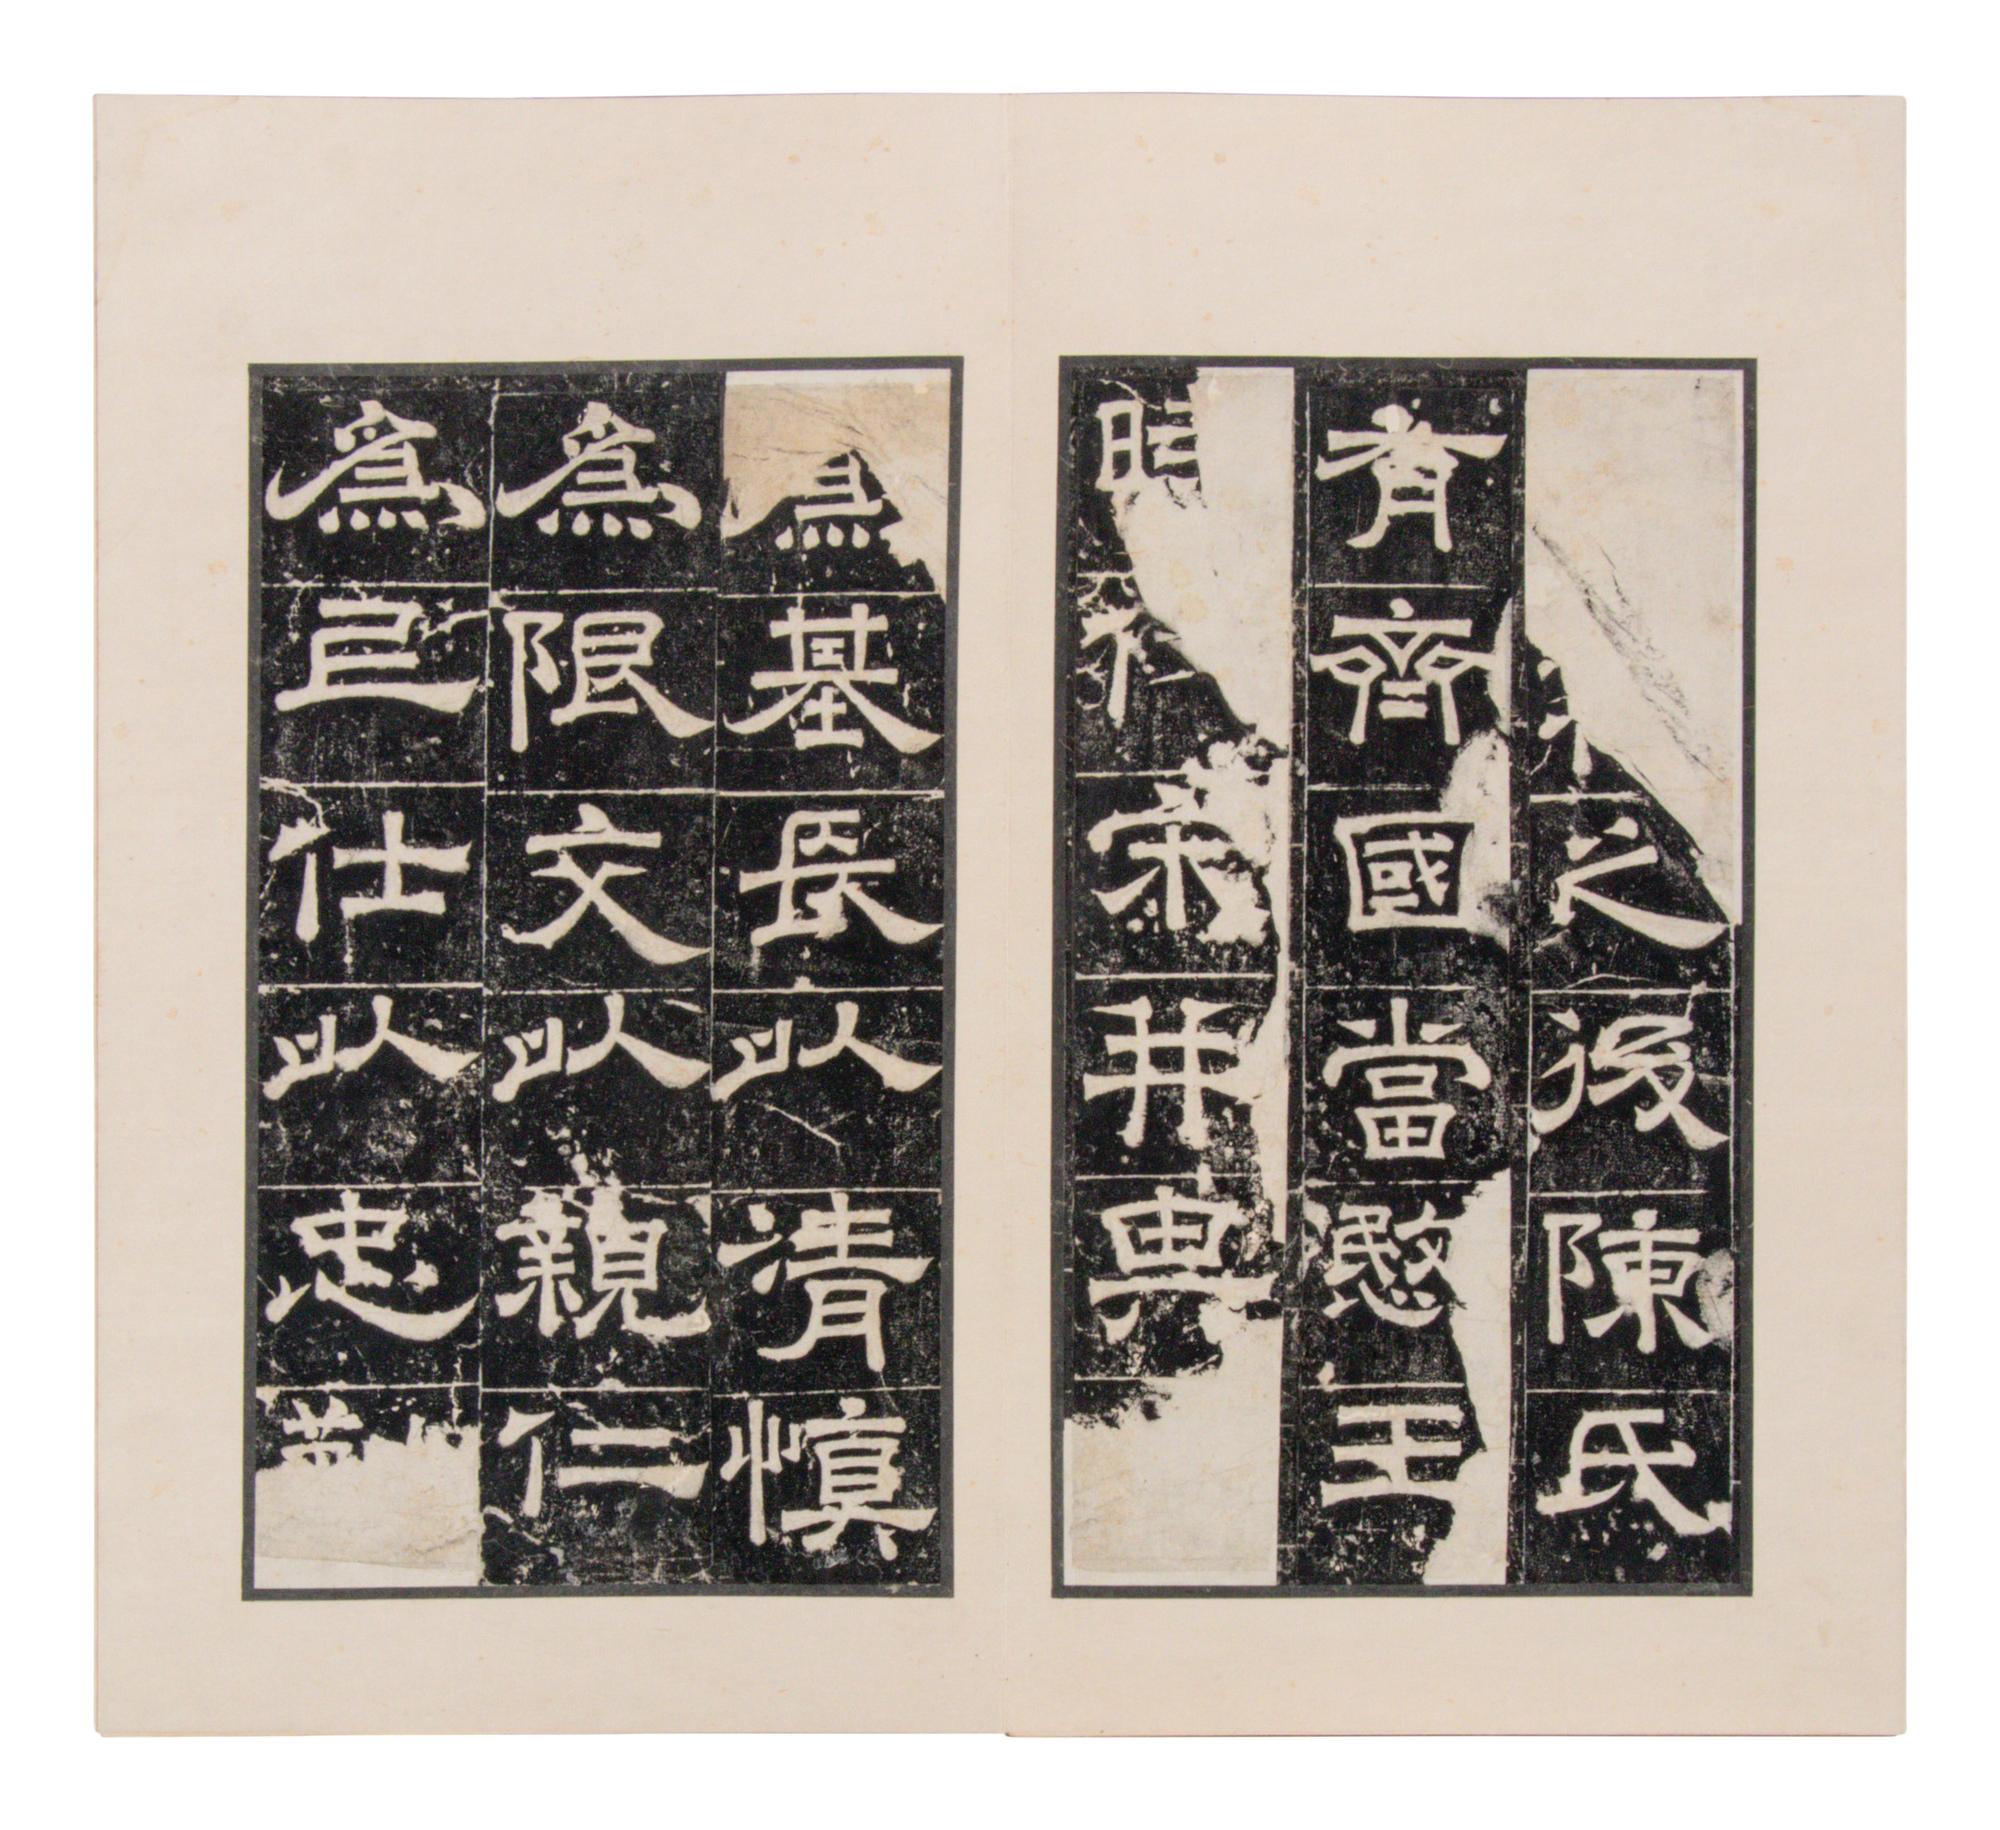 之後陳氏
有齊國當愍王
時宋并
為基長以清慎
為限文以親仁
為仕以忠